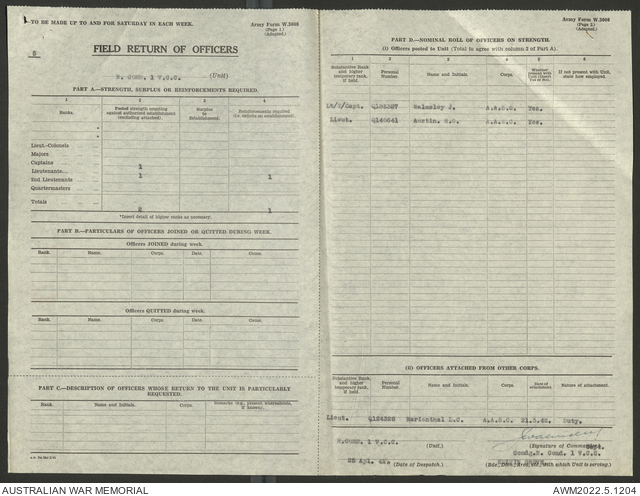 TO BE MADE UP TO AND FOR SATURDAY IN EACH WEEK.
Army Form W.3008
(Page 1)
(Adapted)
5
FIELD RETURN OF OFFICERS
(Unit)
PART A—STRENGTH, SURPLUS OR REINFORCEMENTS REQUIRED.
1 2 3 4
Ranks. Posted strength counting against authorized establishment (excluding attached). Surplus to Establishment. Reinforcements required (i.e. deficits on establishment).
Lieut.-Colonels
Majors
Captains 1
Lieutenants 1
2nd Lieutenants 1
Quartermasters
Totals 2 1
*Insert detail of higher ranks as necessary.
PART B.—PARTICULARS OF OFFICERS JOINED OR QUITTED DURING WEEK.
Officers JOINED during week.
Rank. Name. Corps. Date. Cause.
Officers QUITTED during week.
Rank. Name. Corps. Date. Cause.
PART C.—DESCRIPTION OF OFFICERS WHOSE RETURN TO THE UNIT IS PARTICULARLY REQUESTED.
Rank. Name and Initials. Corps. Remarks (e.g., present whereabouts, if known).
Army Form W.3008
(Page 2)
(Adapted)
PART D.—NOMINAL ROLL OF OFFICERS ON STRENGTH.
(i) Officers posted to Unit (Total to agree with column 2 of Part A).
1 2 3 4 5 6
Substantive Rank and higher temporary rank, if held. Personal Number. Name and Initials. Corps. Whether present with Unit (Insert Yes or No). If not present with Unit, state how employed.
Walmsley J. A.A.S.C. Yes.
Lieut. Austin. A.A.S.C. Yes.
(ii) OFFICERS ATTACHED FROM OTHER CORPS.
Substantive Rank and higher temporary rank, if held. Personal Number. Name and Initials. Corps. Date of attachment. Nature of attachment.
Lieut. A.A.S.C. Duty.
(Unit). (Signature of Commander)
(Date of Despatch). (Bde., Div., Area, etc., with which Unit is serving)
AUSTRALIAN WAR MEMORIAL
AWM2022.5.1204